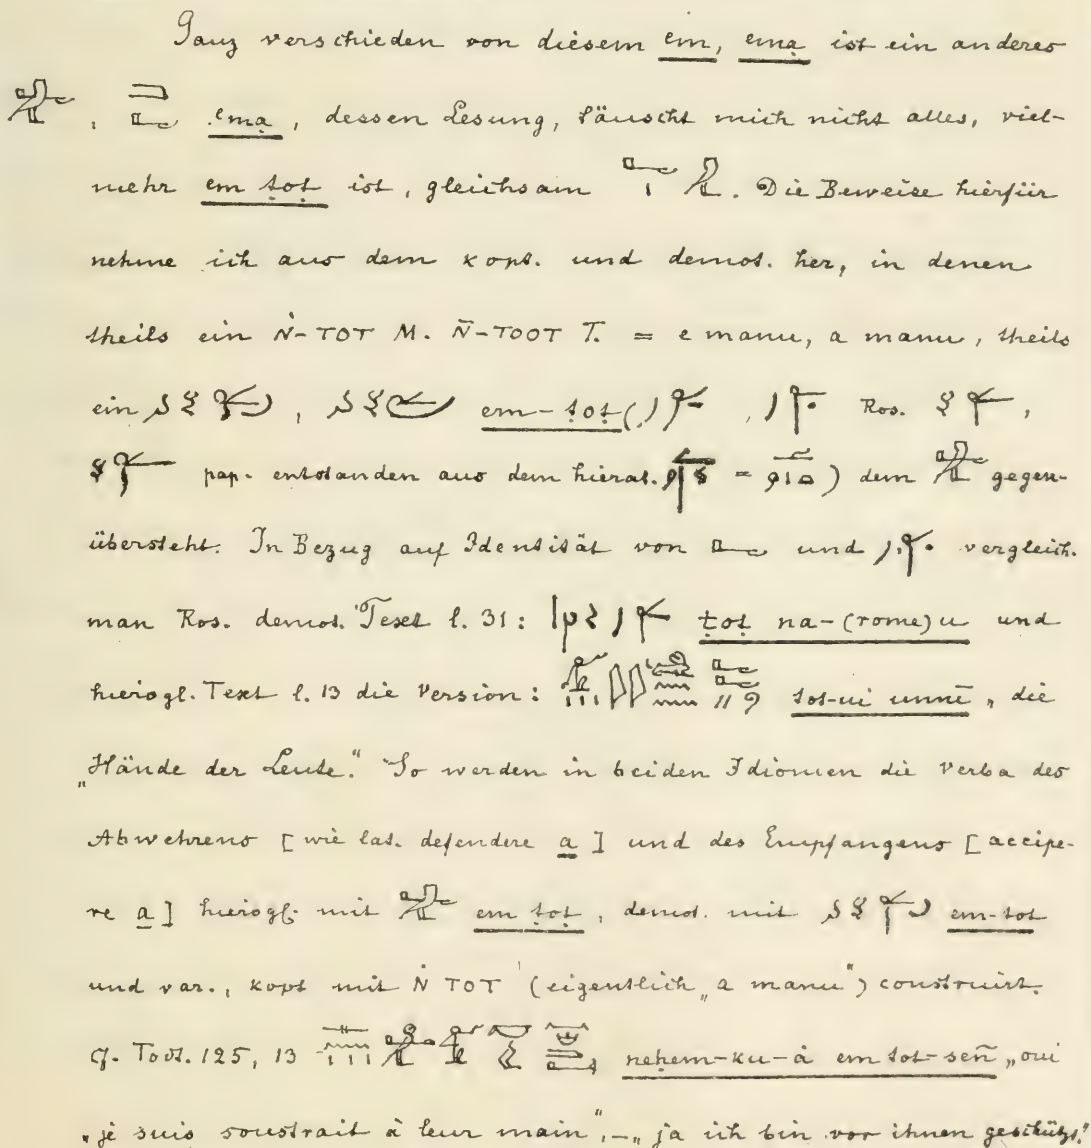 Ganz verschieden von diesem em, emạ ist ein anderes
, emạ, dessen Lesung, täuscht mich nicht alles, viel-
mehr em ṭoṭ ist, gleichsam . Die Beweise hierfür
nehme ich aus dem kopt. und demot. her, in denen
theils ein Ǹ-TOT M. N̄-TOOT T. = e manu, a manu, theils
ein , em-ṭoṭ ( , Ros. ,
pap. entstanden aus dem hierat. = ) dem gegen-
übersteht. In Bezug auf Identität von und vergleich.
man Ros. demot. Text l. 31: ṭoṭ na-(rome)u und
hierogl. Text l. 13 die Version: tot-ui unnē, die
„Hände der Leute." So werden in beiden Idiomen die Verba des
Abwehrens [wie lat. defendere a] und des Empfangens [accipe-
re a] hierogl. mit em ṭoṭ, demot. mit em-tot
und var., kopt mit Ǹ TOT (eigentlich „a manu") construirt.
cf. Todt. 125, 13 neḥem-ku-à em tot-señ „oui
„je suis soustrait à leur main", -„ ja ich bin vor ihnen geschützt!